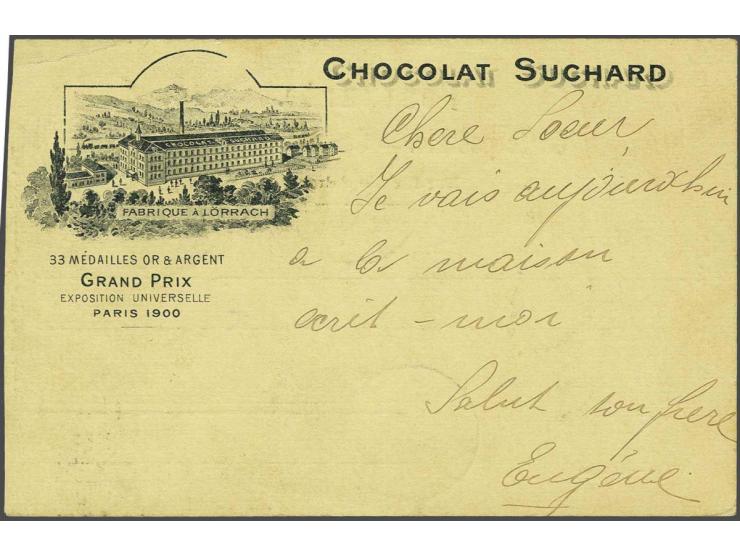 CHOCOLAT SUCHARD
CHOCOLAT SUCHARD
FABRIQUE À LÖRRACH
33 MÉDAILLES OR & ARGENT
GRAND PRIX
EXPOSITION UNIVERSELLE
PARIS 1900
Chère Soeur
Je vais aujourd'hui
a la maison
ecrit-moi
Salut ton frere
Eugène